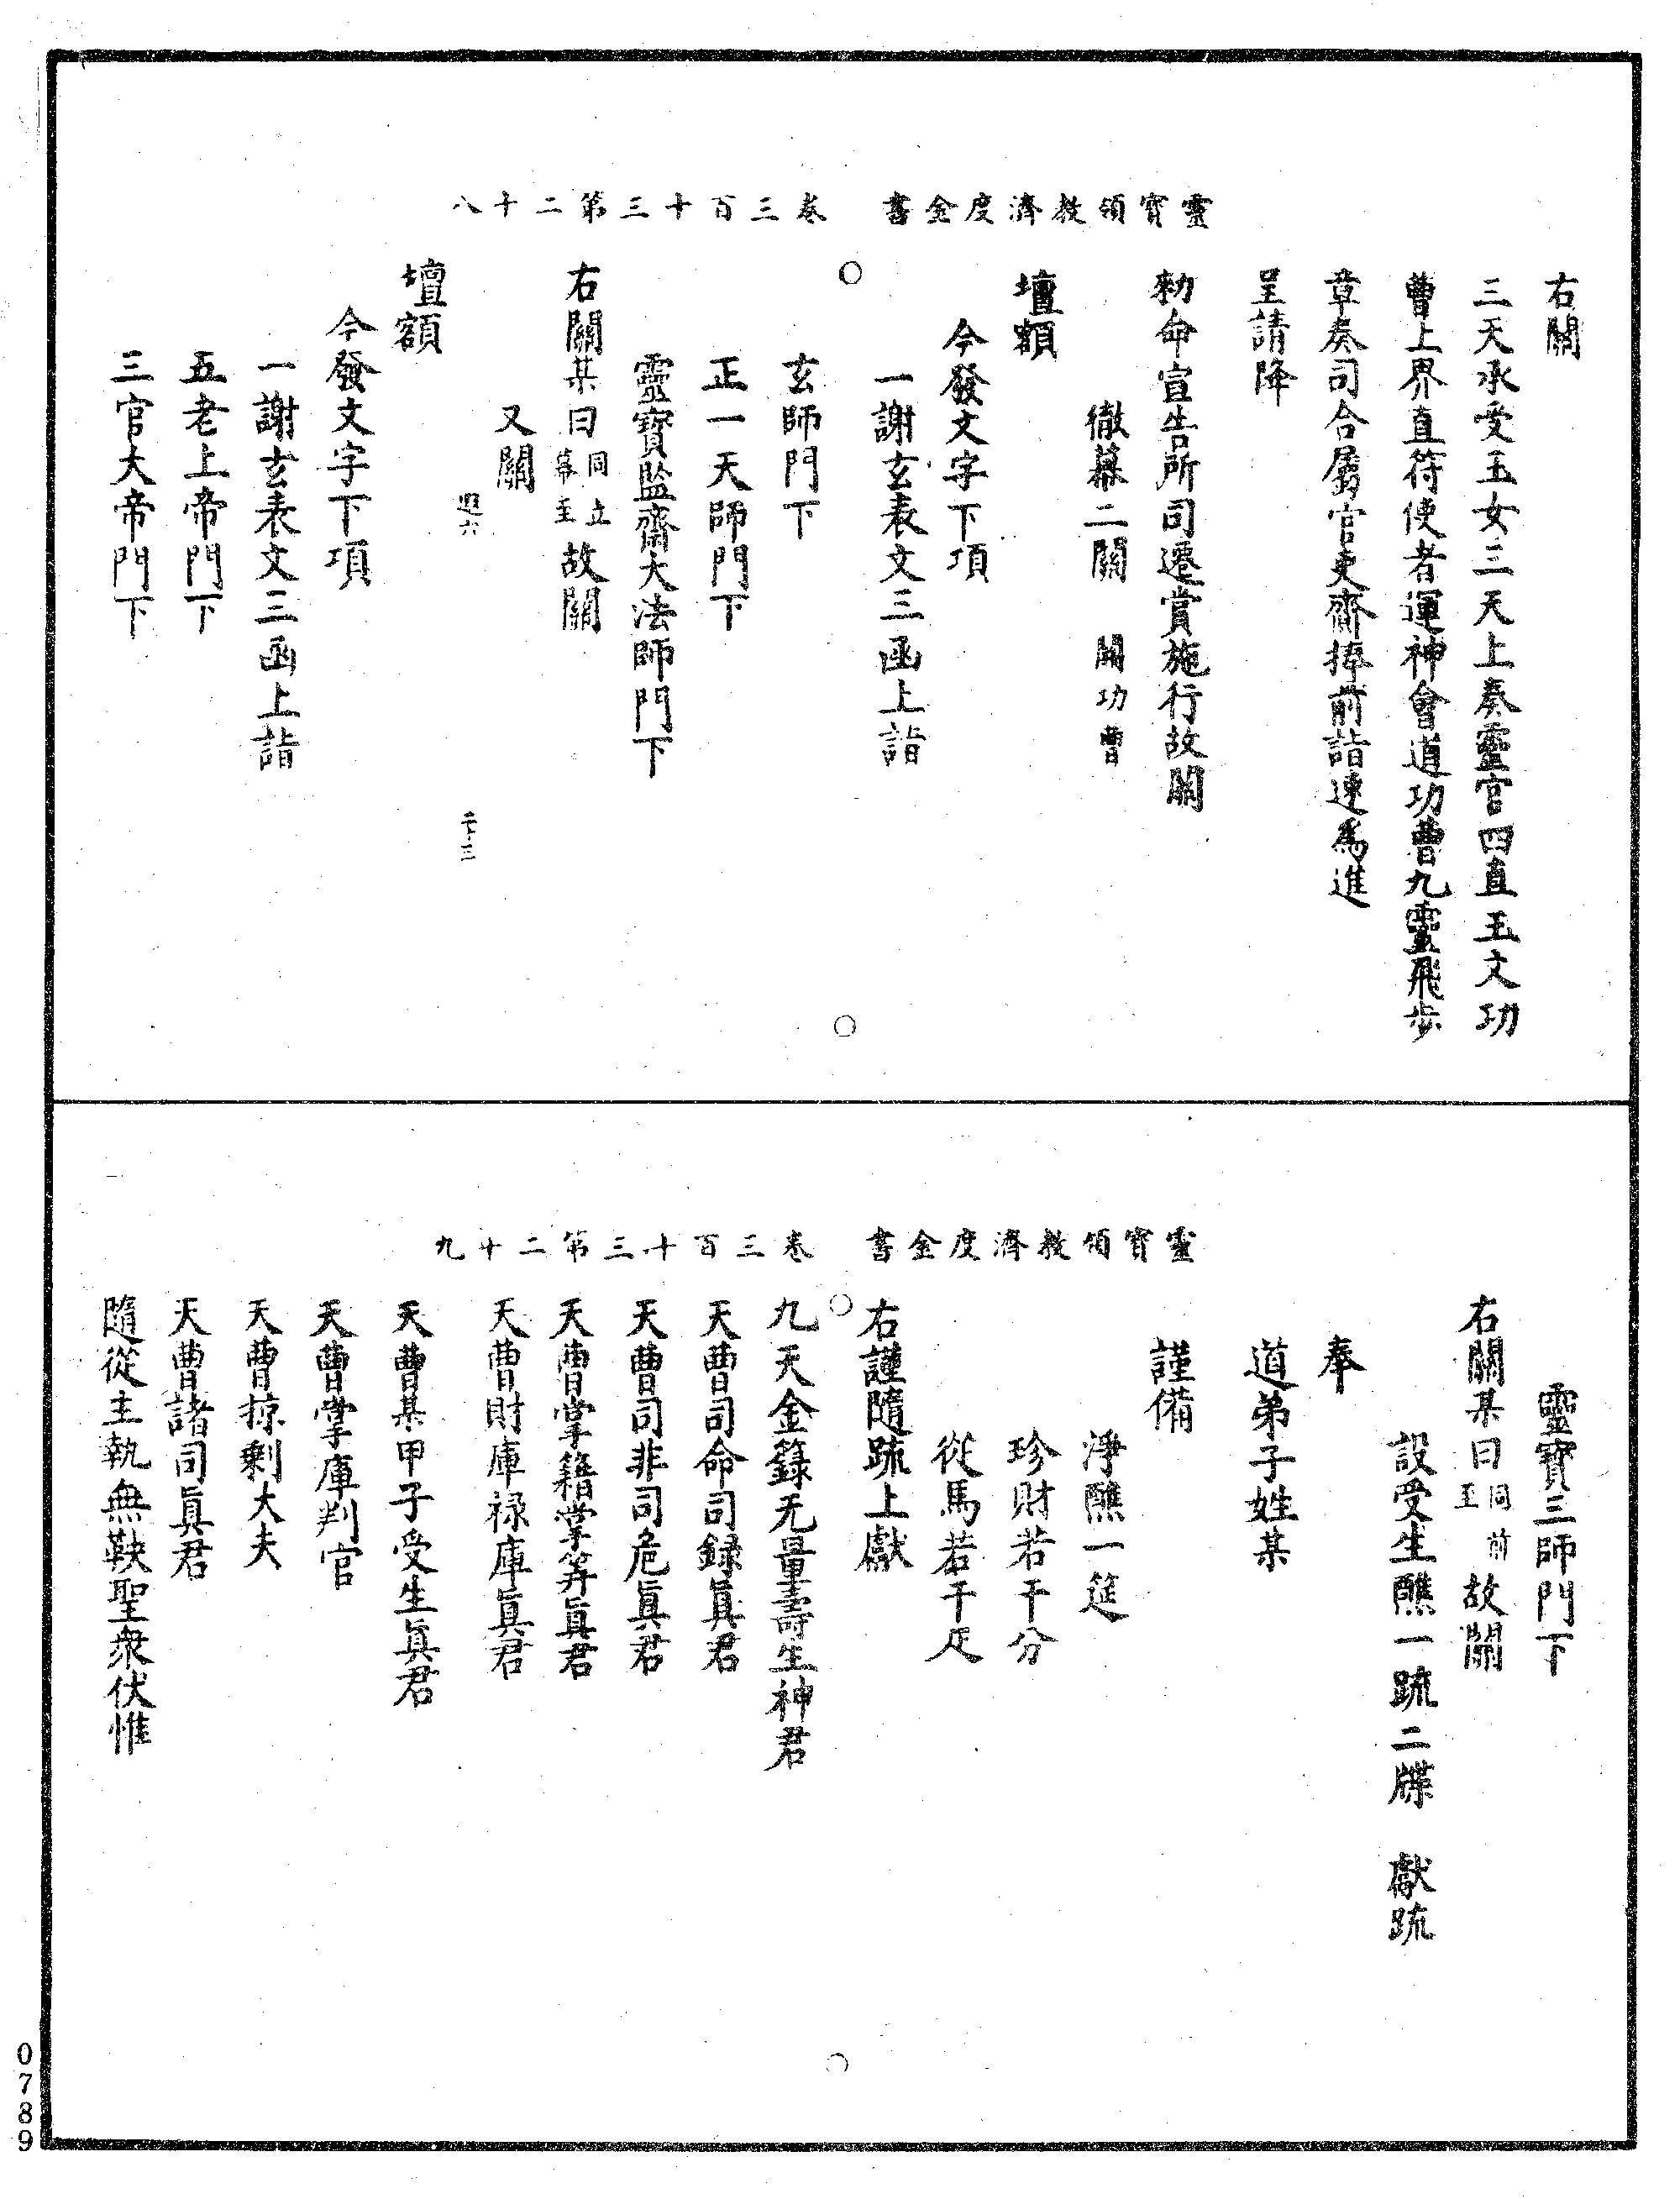 靈寶領教濟度金書　卷三百十三第二十八
右關
三天承受玉女三天上奏靈官四直玉文功
曹上界直符使者運神會道功曹九靈飛步
章奏司合屬官吏齋捧前詣速為進
呈請降
勑命宣告所司遷賞施行故關
徹幕二關　關功曹
壇額
今發文字下項
一謝玄表文三函上詣
玄師門下
正一天師門下
靈寶監齋大法師門下
右關某曰同立幕至故關
又關
二十三
壇額
今發文字下項
一謝玄表文三函上詣
五老上帝門下
三官大帝門下
靈寶領教濟度金書　卷三百十三第二十九
靈寶三師門下
右關某曰同前至故關
設受生醮一䟽二牒　獻䟽
奉
道弟子姓某
謹備
淨醮一筵
珍財若干分
從馬若干疋
右謹隨䟽上獻
九天金籙无量壽生神君
天曹司命司録眞君
天曹司非司危眞君
天曹掌籍掌筭眞君
天曹財庫禄庫眞君
天曹某甲子受生眞君
天曹掌庫判官
天曹掠剩大夫
天曹諸司眞君
隨從主執無鞅聖衆伏惟
0789